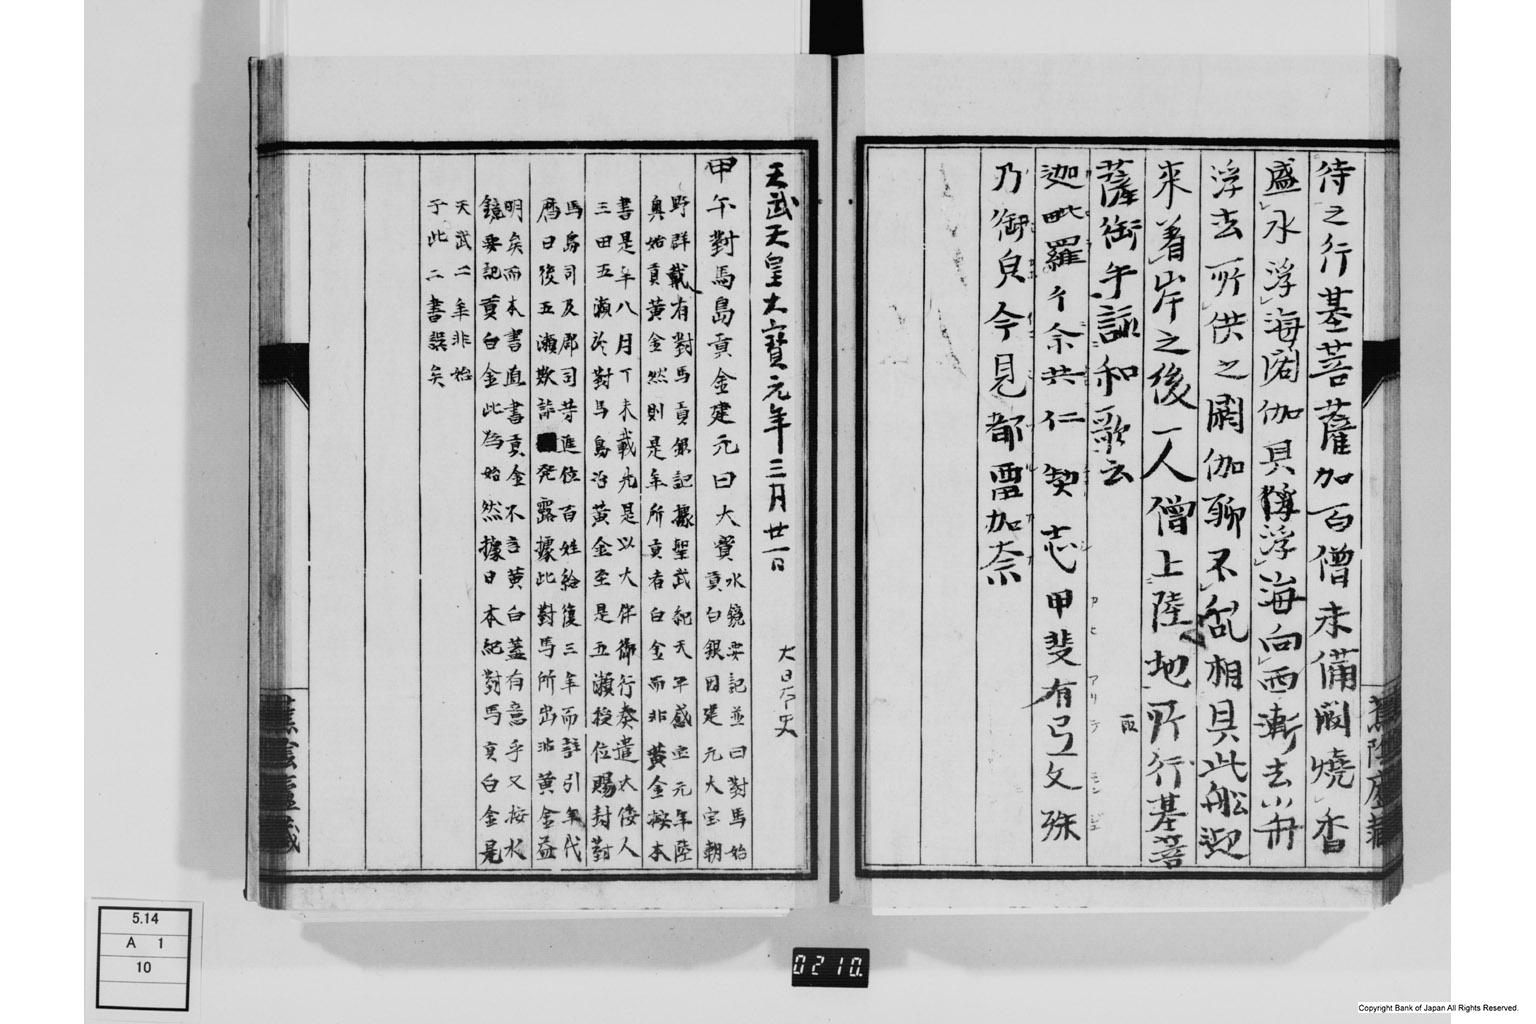 待之行基菩薩加百僧末備閼燒香
盛水浮海閼伽具浮海向西漸去小舟
浮去所供之閼伽聊不乱相具此舩迎
來着岸之後一人僧上陸地所行基菩
薩御手詠和歌云
迦毗羅ヽ尓共仁契志甲斐有弖文殊
カヒ アリテ モンジュ
乃御㒵今見都留加奈
天武天皇大寶元年三月廿一日
大日本史
甲午對馬島貢金建元曰大寶
水鏡要記並曰對馬始
貢白銀因建元大宝朝
野群載有對馬貢銀記據聖武紀天平感宝元年陸
奥始貢黄金然則是年所貢者白金而非黄金按本
書是年八月丁未載先是以大伴御行奏遣大倭人
三田五瀬於對馬島冶黄金至是五瀬授位賜封對
馬島司及郡司等進位百姓給復三年而註引年代
暦曰後五瀬欺詐発露據此對馬所出非黄金益
明矣而本書直書貢金不言黄白蓋有意乎又按水
鏡要記貢白金此為始然據日本紀對馬貢白金是
天武二年非始
于此二書誤矣
蕉陰廬蔵
5.14
A 1
10
0210.
Copyright Bank of Japan All Rights Reserved.